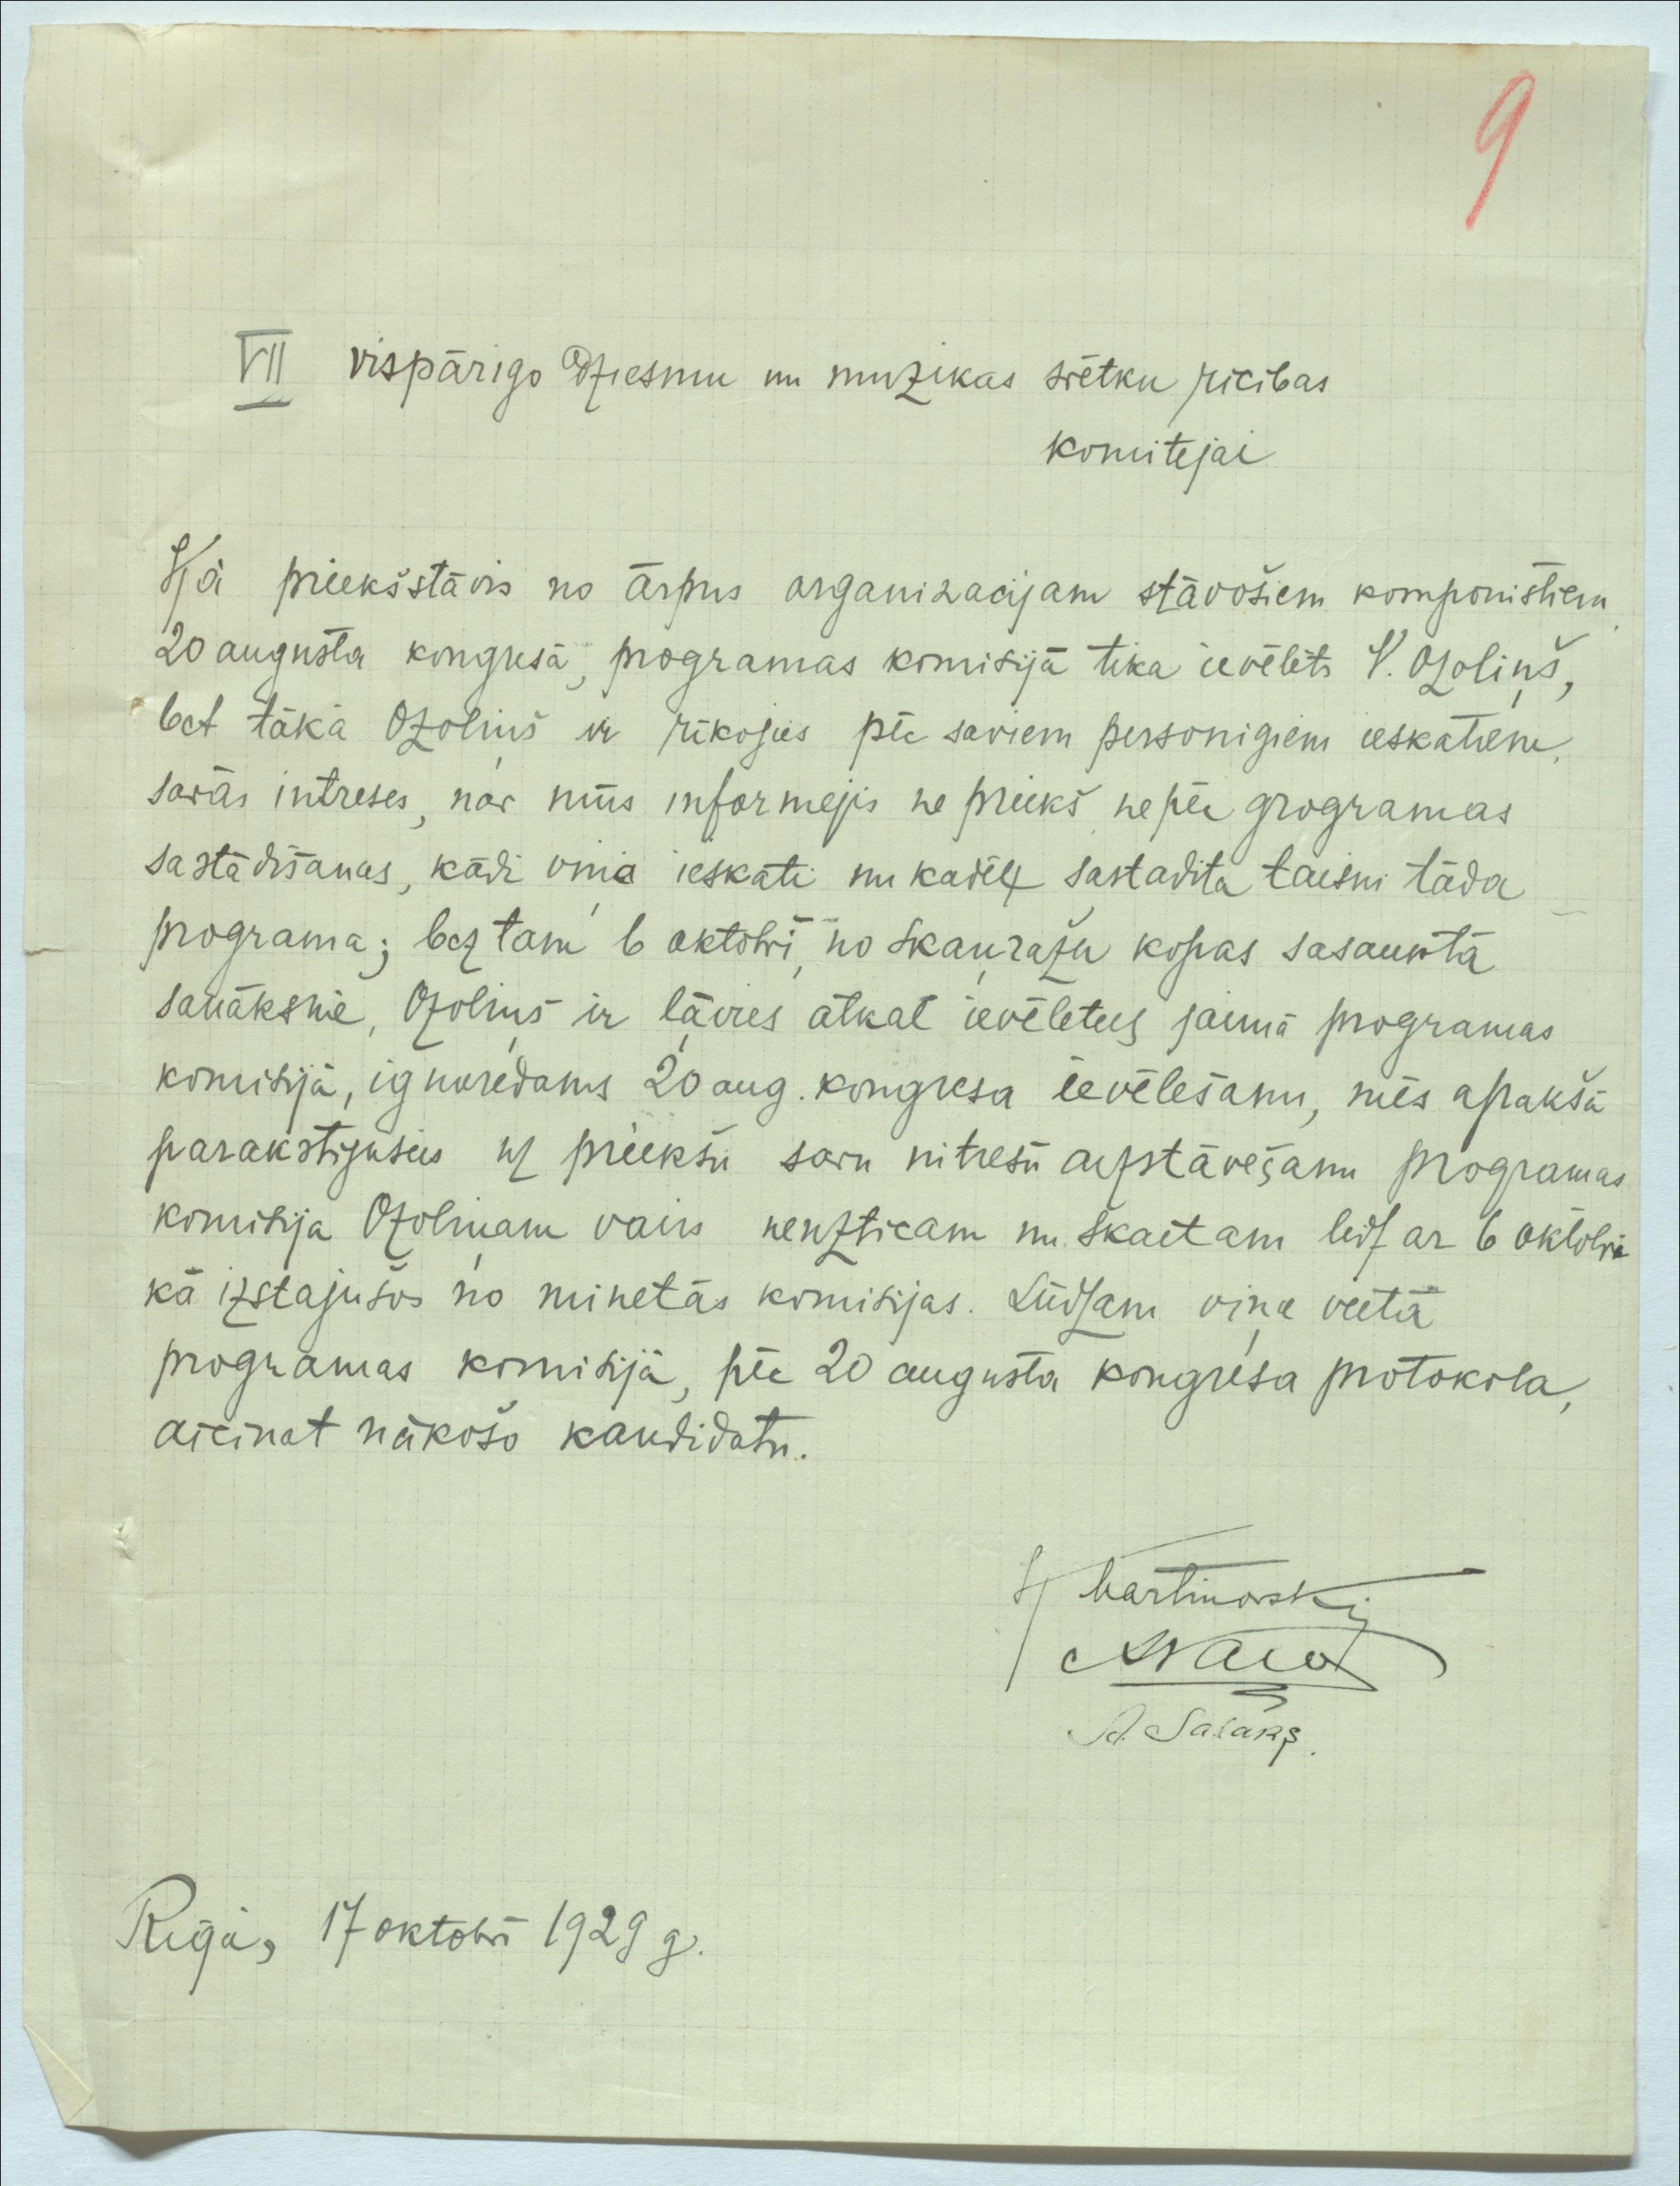 9
VII vispārigo Dziesmu un muzikas svētku rīcibas
komitejai
Kā priekšstāvis no ārpus organizacijam stāvošiem komponistiem
20 augusta kongresā, programas komisijā tika ievēlēts V. Ozoliņš,
bet tākā Ozoliņš ir rīkojies pēc saviem personigiem ieskatiem,
savās intreses, nav mūs informejis ne priekš, ne pēc grogramas
sastādišanas, kādi viņa ieskati un kadēļ sastadita taisni tāda
programa; bez tam 6 oktobrī, no Skaņražu kopas sasauktā
sanāksmē, Ozoliņš ir ļāvies atkal ievēleties jaunā programas
komisijā, ignorēdams 20 aug. kongresa ievēlešanu, mēs apakšā
parakstijušies uz priekšu savu intrešu aizstāvēšanu programas
komisija Ozoliņam vairs neuzticam un skaitam līdz ar 6 oktobri
kā izstajušos no minetās komisijas. Lūdzam viņa vietā
programas komisijā, pēc 20 augusta kongresa protokola,
aicinat nākošo kandidatu.
A. Salaks.
Rigā, 17 oktobrī 1929 g.